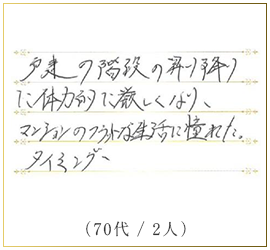 戸建の階段の昇り降り
に体力的に厳しくなり、
マンションのフラットな生活に憧れた。
タイミング、
(70代 / 2人)